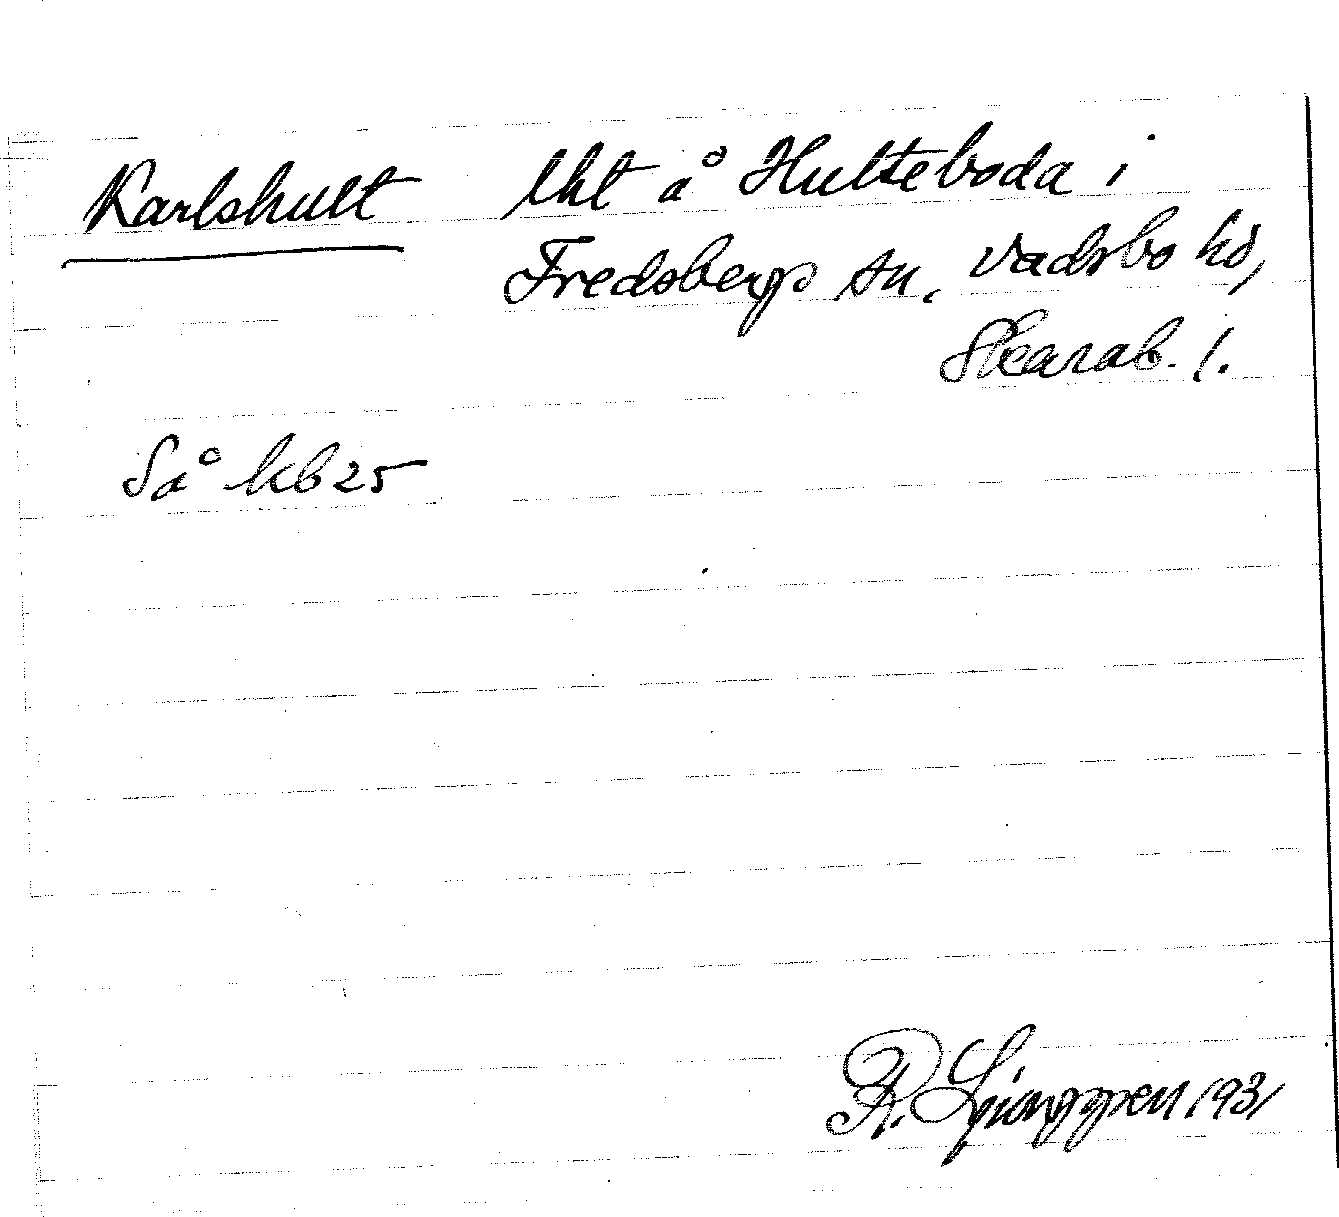 Karlshult lht å Hulteboda i
Fredsbergs sn, Vadsbo hd,
Skarab. l.
Så kb 25
R. Ljunggren 1931